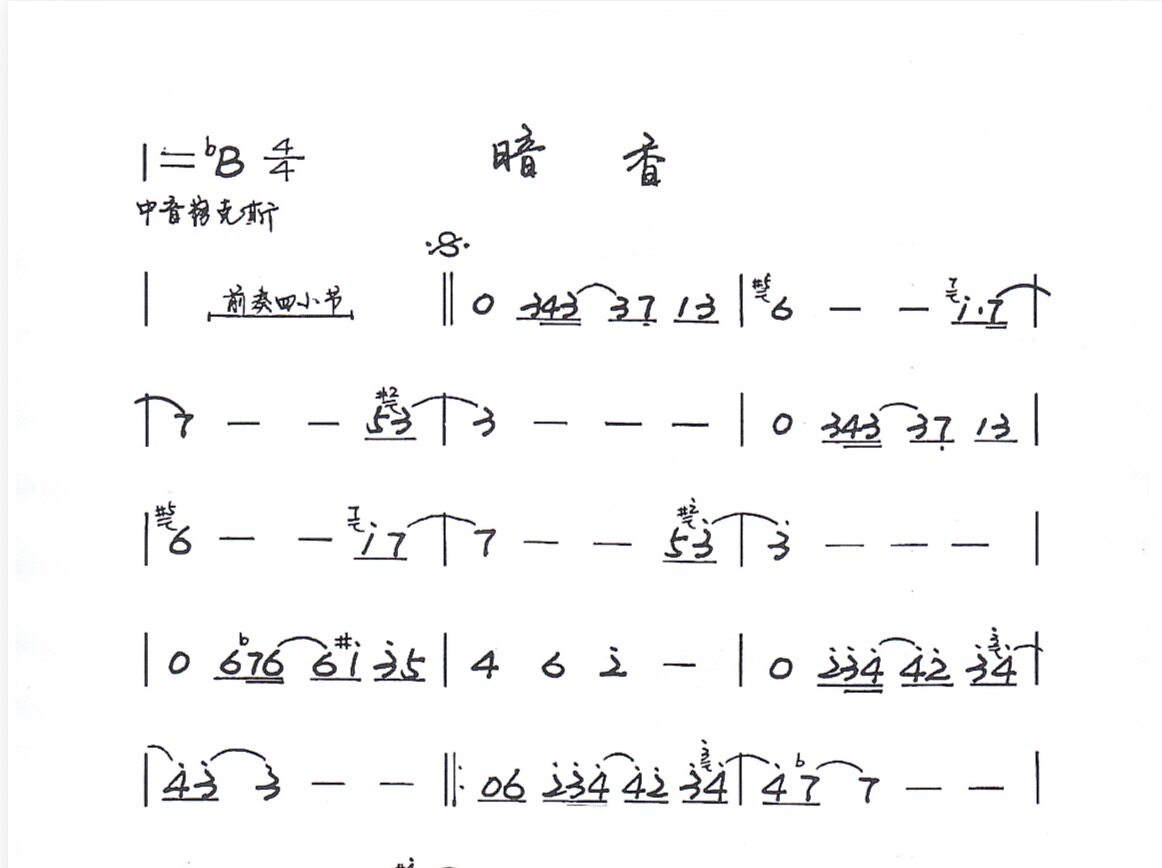 1=ᵇB 4/4 暗 香
中音萨克斯
| 前奏四小节 || 0 343 37̣ 13 | #5 6 — — 7 i·7 |
| 7 — — #2 53 | 3 — — — | 0 343 37̣ 13 |
| #5 6 — — 7 i7 | 7 — — #2̇ 53̇ | 3̇ — — — |
| 0 6ᵇ76 6#i 3̇5 | 4 6 2̇ — | 0 2̇3̇4̇ 4̇2̇ 3̇ 3̇ 4̇ |
| 4̇3̇ 3̇ — — ||: 06 2̇3̇4̇ 4̇2̇ 3̇ 3̇ 4̇ | 4̇ᵇ7 7 — — |